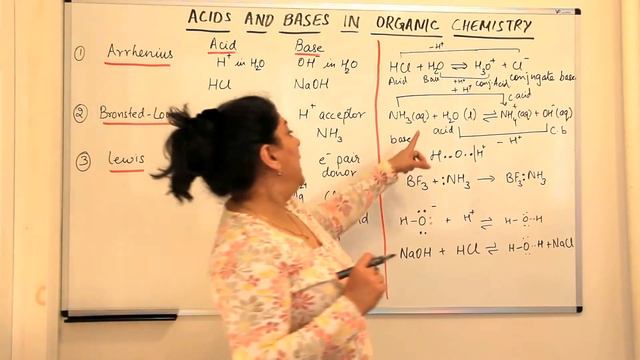 ACIDS AND BASES IN ORGANIC CHEMISTRY
① Arrhenius
Acid
H⁺ in H₂O
HCl
Base
OH⁻ in H₂O
NaOH
② Bronsted-Lo
H⁺ acceptor
NH₃
③ Lewis
e⁻ pair
donor
-H⁺
HCl + H₂O ⇌ H₃O⁺ + Cl⁻
Acid Base +H⁺ conj. Acid conjugate base
+ H⁺ c. acid
NH₃(aq) + H₂O (l) ⇌ NH₄⁺(aq) + OH⁻(aq)
base acid c.b
- H⁺
H..O..|H⁺
BF₃ + :NH₃ → BF₃:NH₃
H-O:⁻ + H⁺ ⇌ H-O..H
NaOH + HCl ⇌ H-O..H + NaCl